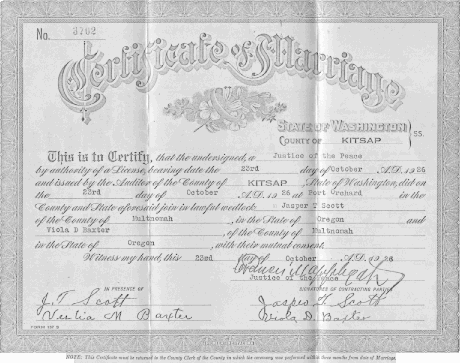 No. 3702
Certificate of Marriage
STATE OF WASHINGTON
COUNTY OF KITSAP } SS.
This is to Certify, that the undersigned, a Justice of the Peace
by authority of a License, bearing date the 23rd day of October A.D. 1926
and issued by the Auditor of the County of KITSAP, State of Washington, did on
the 23rd day of October, A.D. 1926 at Port Orchard in the
County and State aforesaid join in lawful wedlock Jasper T Scott
of the County of Multnomah, in the State of Oregon and
Viola D Baxter, of the County of Multnomah
in the State of Oregon, with their mutual consent.
Witness my hand, this 23rd day of October, A.D. 1926
Justice of the Peace
IN PRESENCE OF
SIGNATURES OF CONTRACTING PARTIES
J. T. Scott
Jasper T. Scott
M Baxter
Viola D. Baxter
NOTE: This Certificate must be returned to the County Clerk of the County in which the ceremony was performed within three months from date of Marriage.